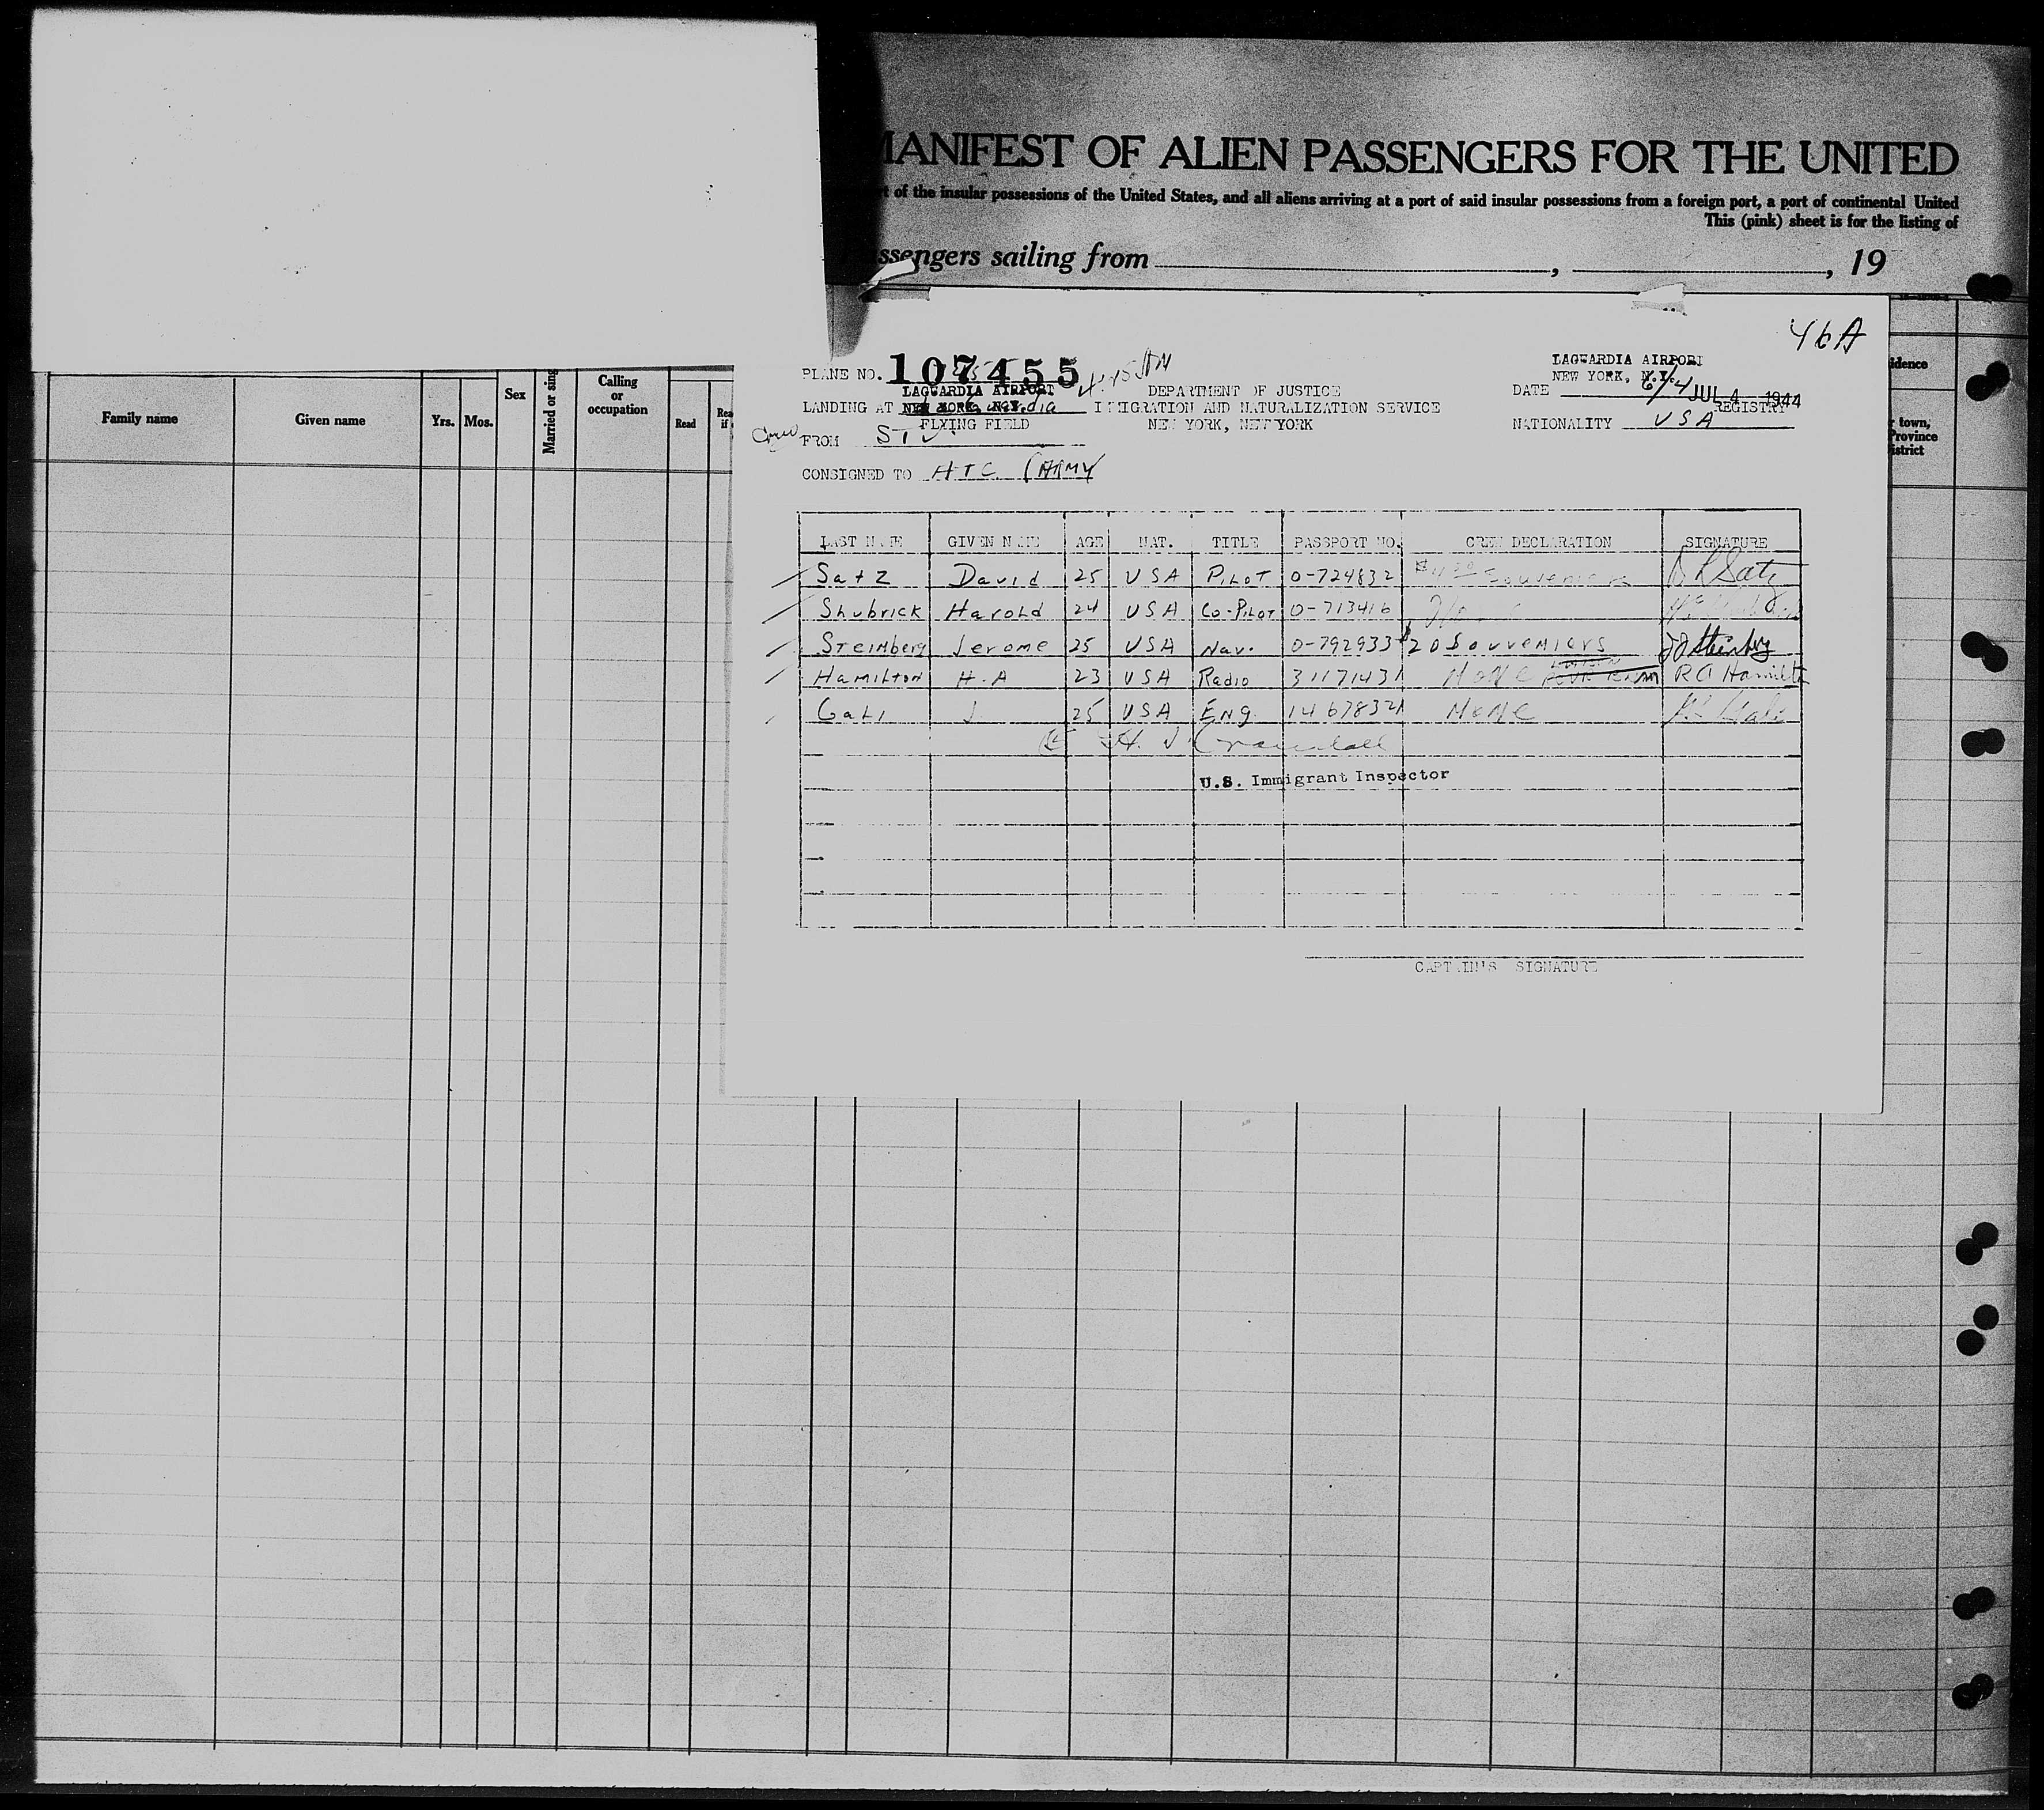 MANIFEST OF ALIEN PASSENGERS FOR THE UNITED
of the insular possessions of the United States, and all aliens arriving at a port of said insular possessions from a foreign port, a port of continental United
This (pink) sheet is for the listing of
ssengers sailing from , , 19
46A
PLANE NO. 107455
LAGUARDIA AIRPORT
NEW YORK, N.Y.
LANDING AT
FLYING FIELD
DEPARTMENT OF JUSTICE
IMMIGRATION AND NATURALIZATION SERVICE
NEW YORK, NEW YORK
LAGUARDIA AIRPORT
NEW YORK, N.Y.
DATE 6/4 JUL 4 1944
REGISTRY
NATIONALITY USA
Crew FROM
CONSIGNED TO ATC (ARMY
LAST NAME GIVEN NAME AGE NAT. TITLE PASSPORT NO. CREW DECLARATION SIGNATURE
Satz David 25 USA PILOT O-724832 Souveniers D R Satz
Shubrick Harold 24 USA Co-PILOT O-713416
Steinberg Jerome 25 USA Nav. O-792933 $20 Souveniers J J Steinberg
Hamilton H.A 23 USA Radio 31171431 NONE R A Hamilton
Gahi J 25 USA ENG. 14678321 NONE
U.S. Immigrant Inspector
CAPTAIN'S SIGNATURE
Family name Given name Yrs. Mos. Sex Married or sing Calling or occupation Read
idence
town,
Province
istrict